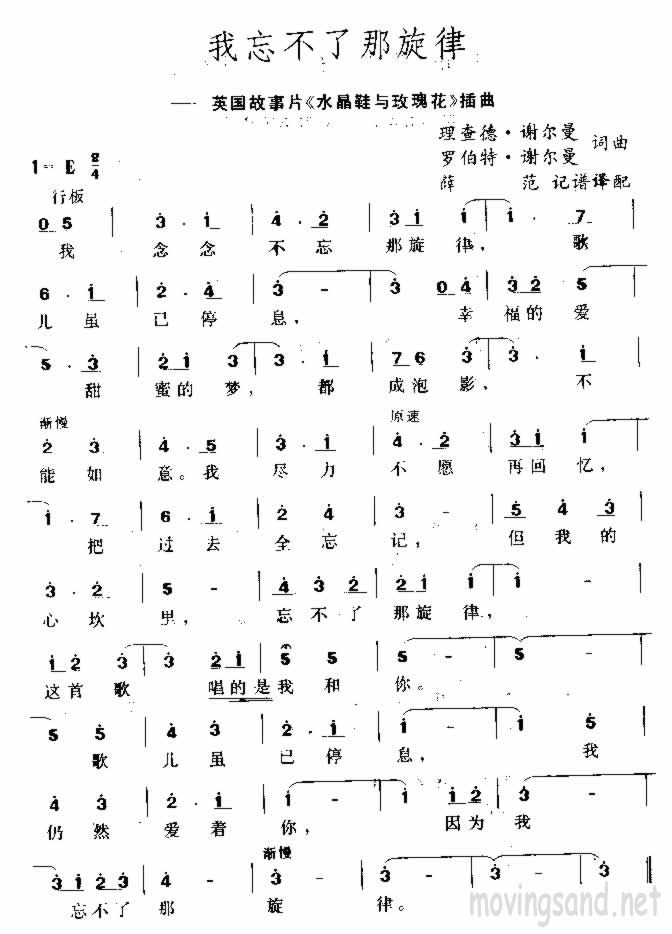 我忘不了那旋律
—— 英国故事片《水晶鞋与玫瑰花》插曲
理查德·谢尔曼
罗伯特·谢尔曼 词曲
薛 范 记谱译配
1=E 2/4
行板
0 5 | 3 · 1 | 4 · 2 | 3 1 1 | 1 · 7 |
我 念念 不忘 那旋律, 歌
6 · 1 | 2 · 4 | 3 - | 3 0 4 | 3 2 5 |
儿虽 已停 息, 幸 福的爱
5 · 3 | 2 1 3 | 3 · 1 | 7 6 3 | 3 · 1 |
甜 蜜的梦, 都 成泡影, 不
渐慢 原速
2 3 | 4 · 5 | 3 · 1 | 4 · 2 | 3 1 1 |
能如 意。我 尽力 不愿 再回忆,
1 · 7 | 6 · 1 | 2 4 | 3 - | 5 4 3 |
把 过去 全忘 记, 但我的
3 · 2 | 5 - | 4 3 2 | 2 1 1 | 1 - |
心坎 里, 忘不了 那旋律,
1 2 3 | 3 2 1 | 5 5 | 5 - | 5 - |
这首歌 唱的是我和 你。
5 5 | 4 3 | 2 · 1 | 1 - | 1 5 |
歌 儿虽 已停 息, 我
4 3 | 2 · 1 | 1 - | 1 1 2 | 3 - |
仍然 爱着 你, 因为我
渐慢
3 1 2 3 | 4 - | 3 - | 3 - | 3 - |
忘不了 那 旋 律。
movingsand.net